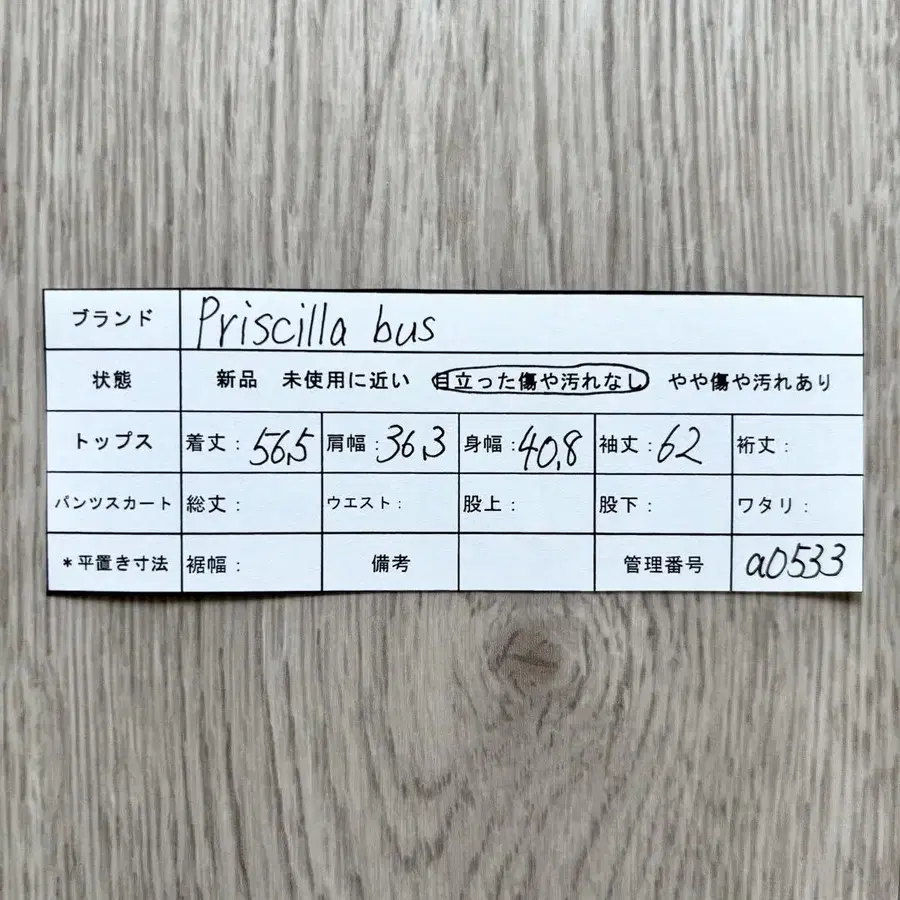 ブランド Priscilla bus
状態 新品 未使用に近い 目立った傷や汚れなし やや傷や汚れあり
トップス 着丈: 56.5 肩幅: 36.3 身幅: 40.8 袖丈: 62 裄丈:
パンツスカート 総丈: ウエスト: 股上: 股下: ワタリ:
*平置き寸法 裾幅: 備考 管理番号 a0533